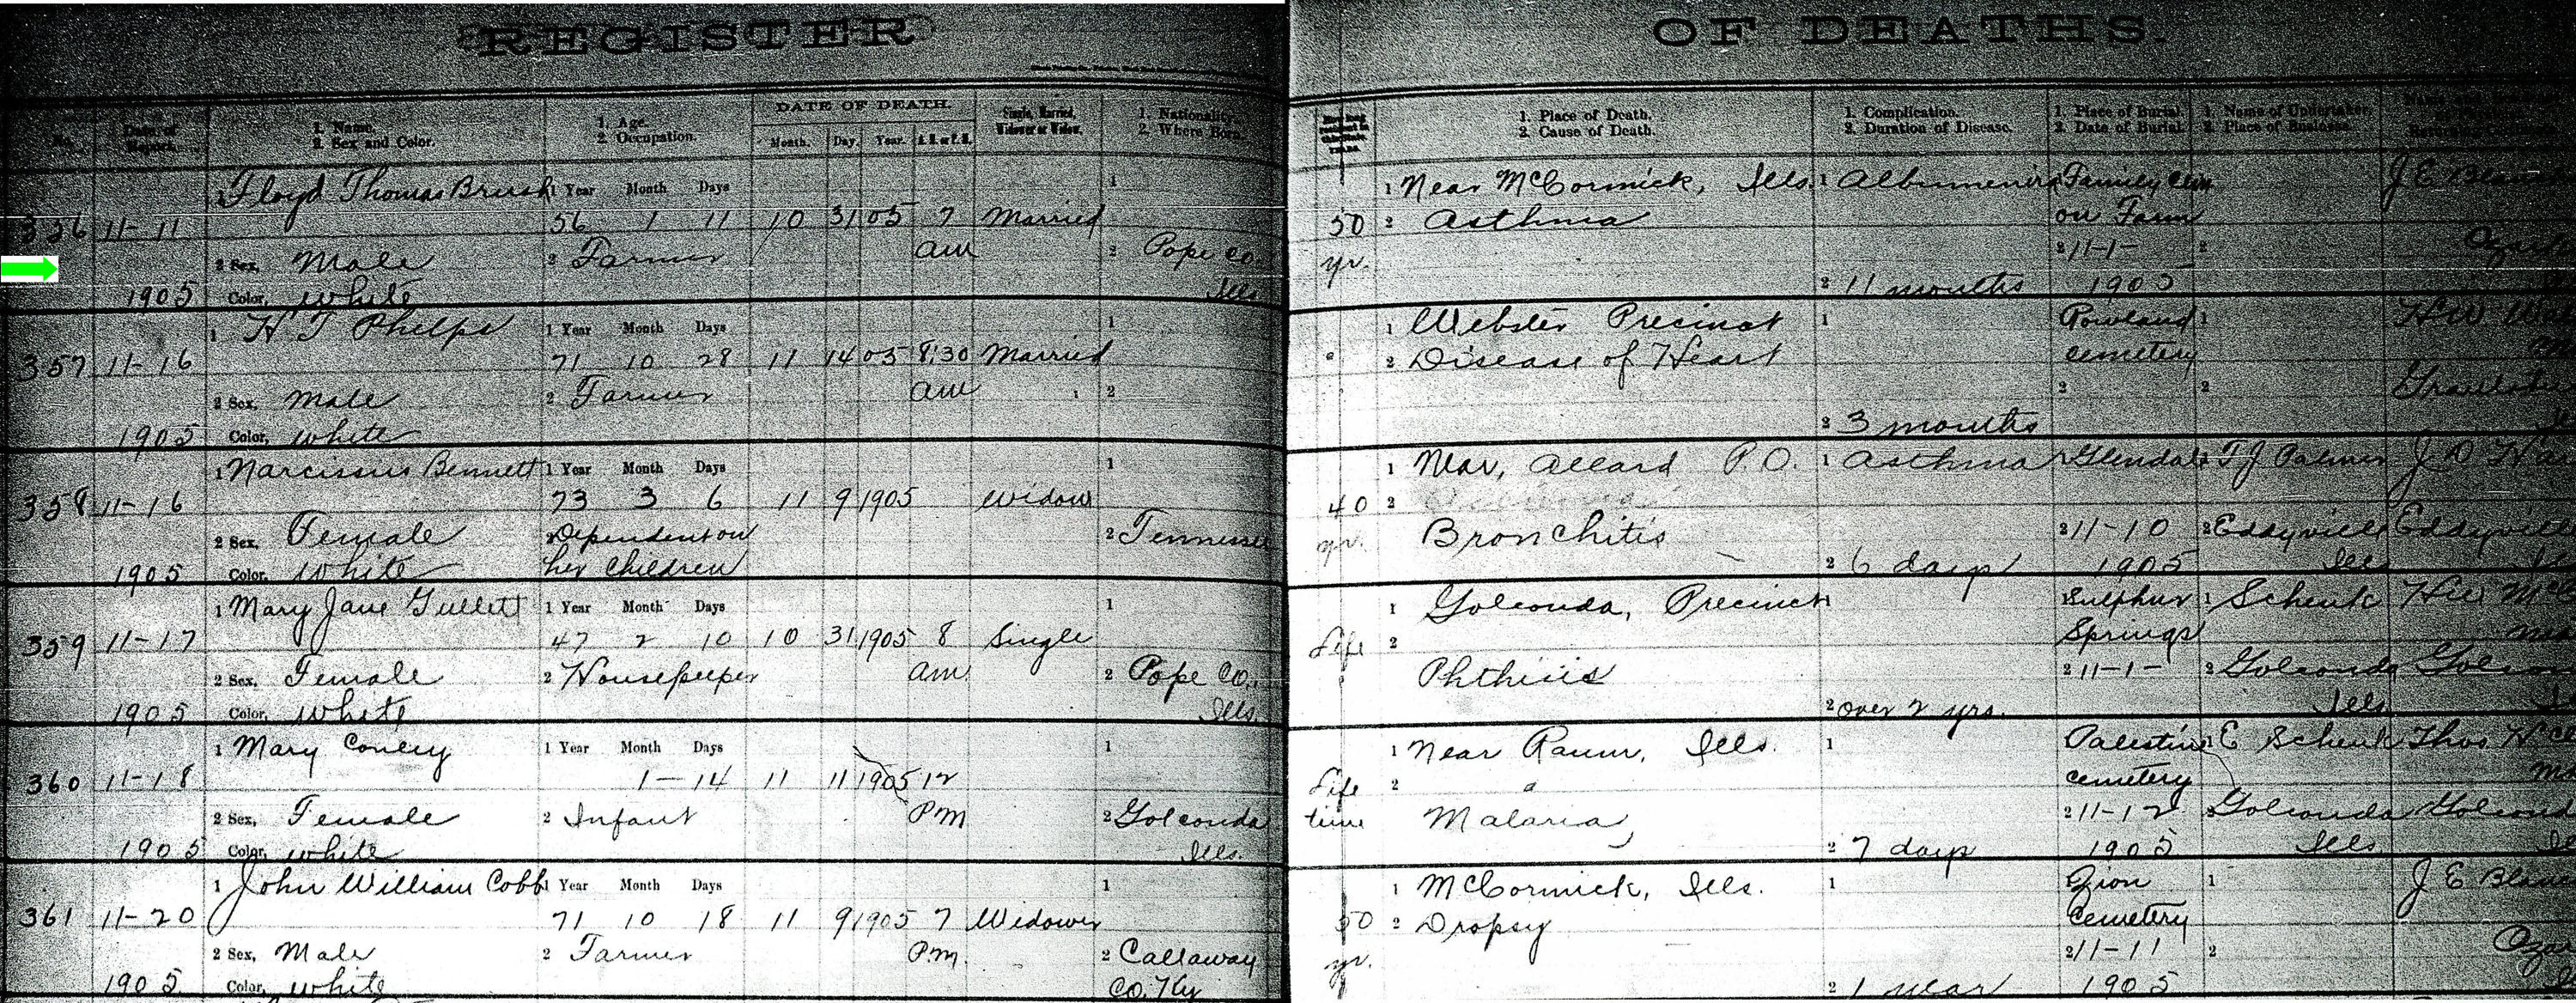 REGISTER OF DEATHS.
No. Date of Report. 1. Name. 2. Sex and Color. 1. Age. 2. Occupation. DATE OF DEATH. Month. Day. Year. A.M. or P.M. Single, Married, Widower or Widow. 1. Nationality. 2. Where Born. 1. Place of Death. 2. Cause of Death. 1. Complication. 2. Duration of Disease. 1. Place of Burial. 2. Date of Burial. 1. Name of Undertaker. 2. Place of Business.
1 Floyd Thomas Brush 1 Year Month Days 1 1 Near McCormick, Ills. 1 Family Cem J E
336 11-11 56 1 11 10 31 05 7 Married 50 2 Asthma on Farm
2 Sex, Male 2 Farmer am 2 Pope Co. yr. 2 11-1- 2
1905 Color, white Ills 2 11 months 1905
1 H T Phelps 1 Year Month Days 1 1 Webster Precinct 1 Rowland 1
357 11-16 71 10 28 11 14 05 8:30 Married 2 Disease of Heart cemetery
2 Sex, male 2 Farmer am 2 2 2
1905 Color, white 2 3 months
1 Narcissus Bennett 1 Year Month Days 1 1 Near, Allard P.O. 1 Asthma 1 Glendale 1 T J Palmer J D
358 11-16 73 3 6 11 9 1905 Widow 40 2
2 Sex, Female 2 Dependent on 2 Tennessee yr. Bronchitis 2 11-10 2 Eddyville Eddyville
1905 Color, White her children 2 6 days 1905 Ills
1 Mary Jane Gullett 1 Year Month Days 1 1 Golconda, Precinct 1 1 Sulphur 1 Schenk
359 11-17 47 2 10 10 31 1905 8 Single Life 2 Springs
2 Sex, Female 2 Housekeeper am 2 Pope Co., Phthisis 2 11-1- 2 Golconda
1905 Color, White Ills. 2 over 2 yrs. Ills
1 Mary Conery 1 Year Month Days 1 1 Near Raum, Ills. 1 Palestine 1 E Schenk Thos H
360 11-18 1-14 11 11 1905 12 Life 2 cemetery
2 Sex, Female 2 Infant P.M 2 Golconda time Malaria 2 11-12 2 Golconda
1905 Color, white Ills. 2 7 days 1905 Ills
1 John William Cobb 1 Year Month Days 1 1 McCormick, Ills. 1 Zion 1 J E
361 11-20 71 10 18 11 9 1905 7 Widower 50 2 Dropsy cemetery
2 Sex, Male 2 Farmer P.M. 2 Callaway yr. 2 11-11 2
1905 Color, white Co. Ky 2 1 year 1905